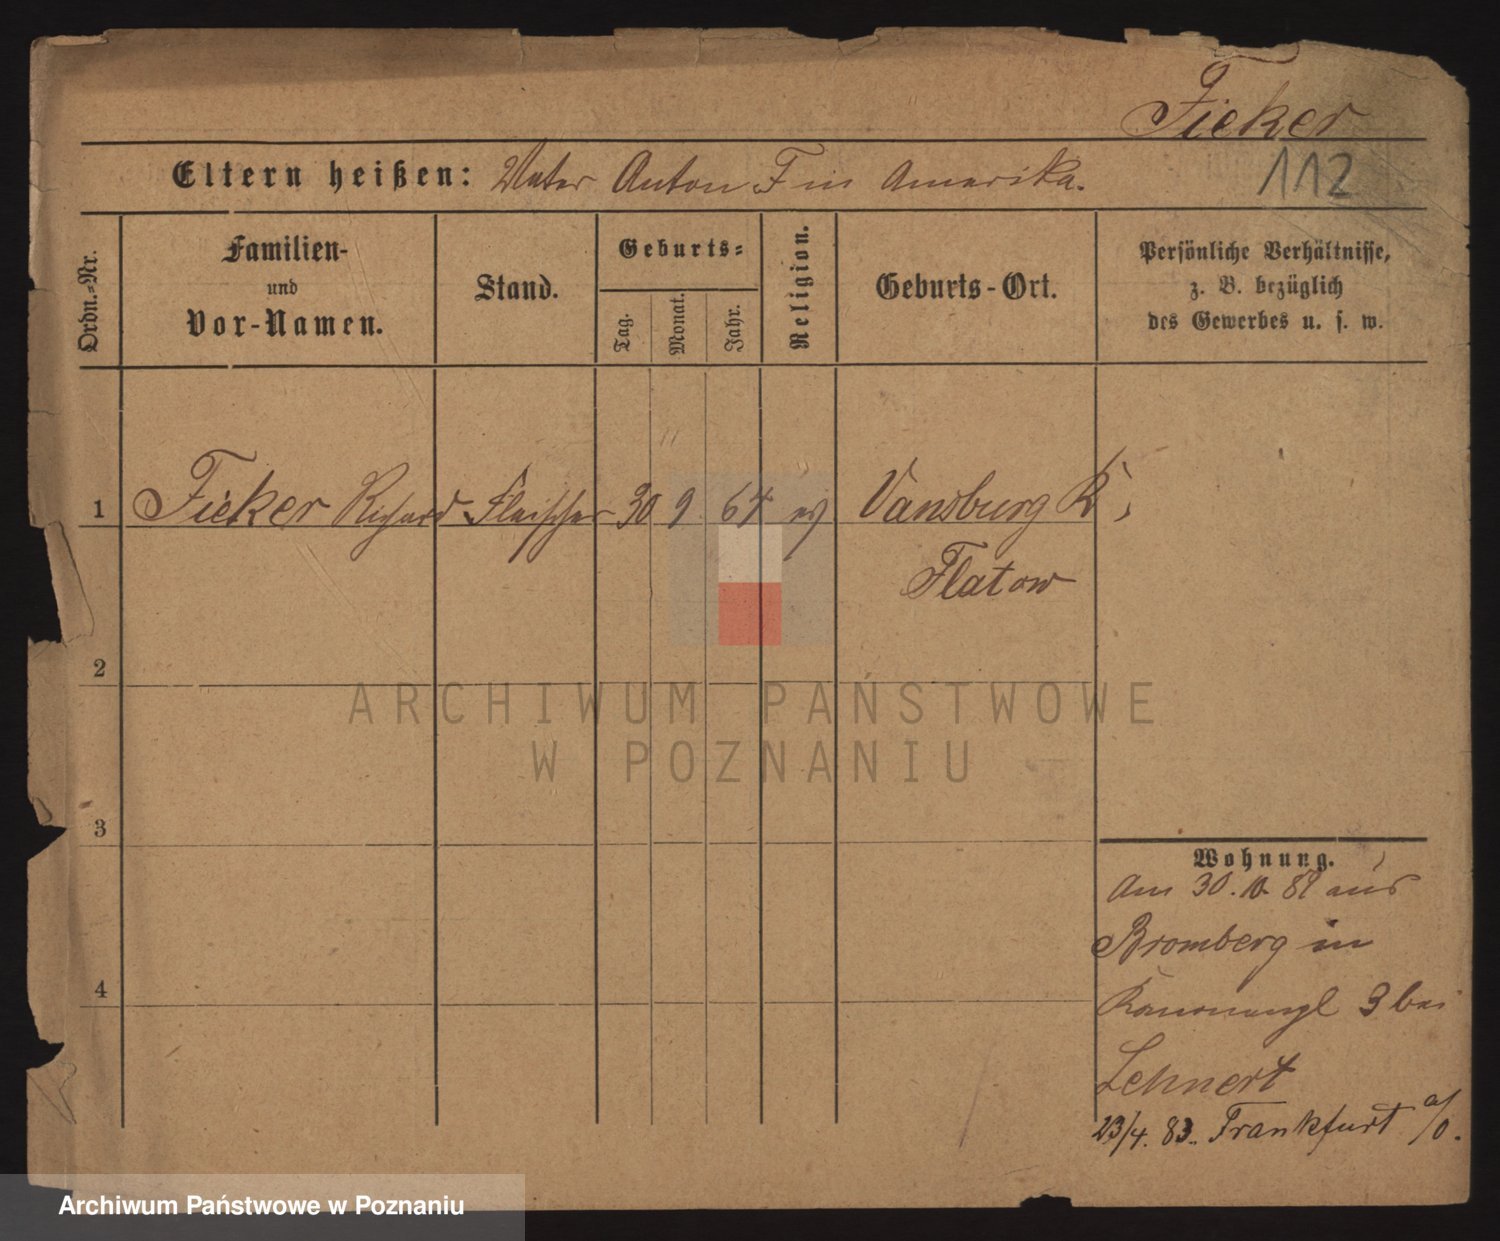 Fieker
112
Eltern heißen: Vater Anton F in Amerika.
Ordn.-Nr.
Familien-
und
Vor-Namen.
Stand.
Geburts-
Tag.
Monat.
Jahr.
Religion.
Geburts-Ort.
Persönliche Verhältnisse,
z. B. bezüglich
des Gewerbes u. s. w.
1 Fieker Richard Fleischer 30 9 64 ev Vansburg K
Flatow
2
3
4
Wohnung.
Am 30. 10. 82 aus
Bromberg in
3 bei
Lehnert
23/4. 83. Frankfurt a/O.
ARCHIWUM PAŃSTWOWE
W POZNANIU
Archiwum Państwowe w Poznaniu